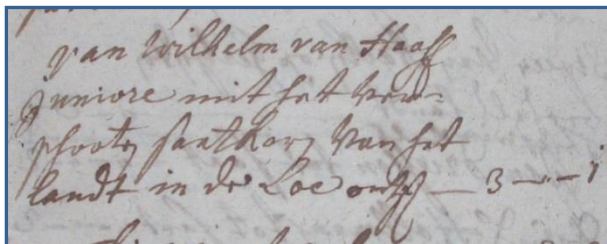 van Wilhelm van Haaff
Juniore mit het ver=
schooten saatkorn van het
landt in de Loe ontf — 3 — — j